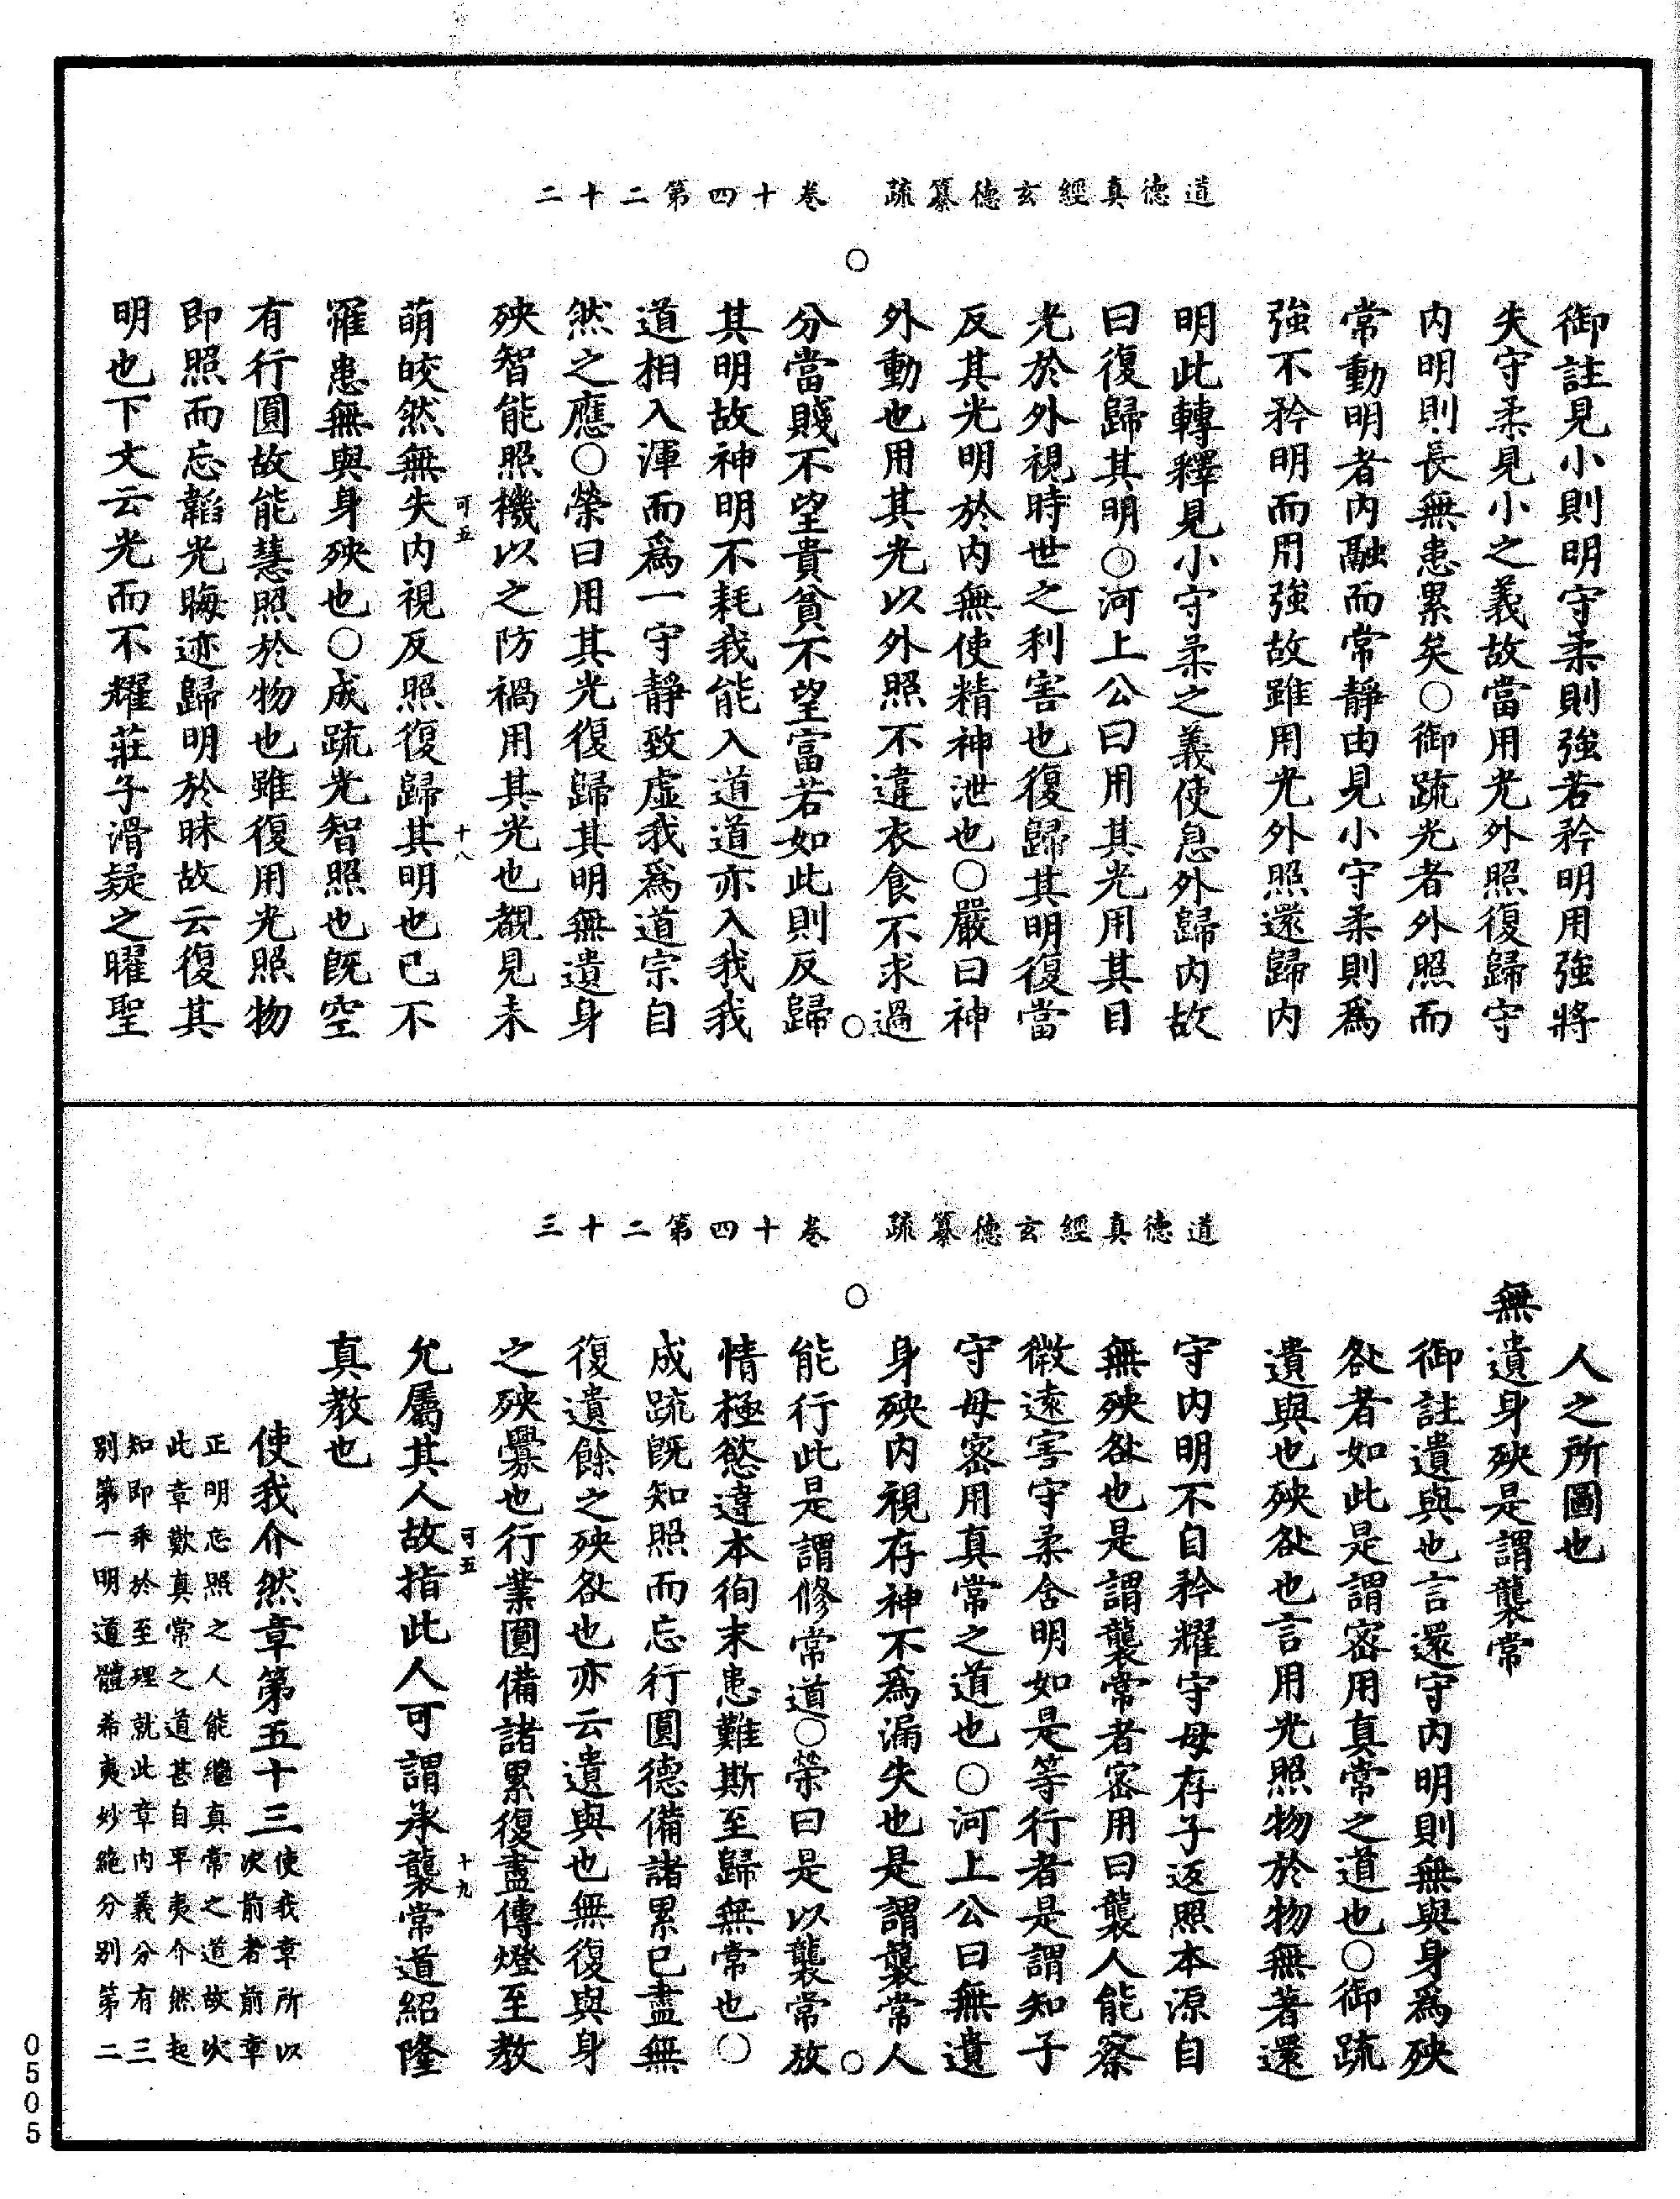 道德真經玄德纂疏　卷十四第二十二
御註見小則明守柔則強若矜明用強將
失守柔見小之義故當用光外照復歸守
內明則長無患累矣○御疏光者外照而
常動明者內融而常靜由見小守柔則為
強不矜明而用強故雖用光外照還歸內
明此轉釋見小守柔之義使息外歸內故
曰復歸其明○河上公曰用其光用其目
光於外視時世之利害也復歸其明復當
反其光明於內無使精神泄也○嚴曰神
外動也用其光以外照不違衣食不求過
分當賤不望貴貧不望富若如此則反歸
其明故神明不耗我能入道道亦入我我
道相入渾而為一守靜致虛我為道宗自
然之應○榮曰用其光復歸其明無遺身
殃智能照機以之防禍用其光也覩見未
萌皎然無失內視反照復歸其明也已不
可五　十八
罹患無與身殃也○成疏光智照也既空
有行圓故能慧照於物也雖復用光照物
即照而忘韜光晦迹歸明於昧故云復其
明也下文云光而不耀莊子滑疑之曜聖
道德真經玄德纂疏　卷十四第二十三
人之所圖也
無遺身殃是謂襲常
御註遺與也言還守內明則無與身為殃
咎者如此是謂密用真常之道也○御疏
遺與也殃咎也言用光照物於物無著還
守內明不自矜耀守母存子返照本源自
無殃咎也是謂襲常者密用曰襲人能察
微遠害守柔舍明如是等行者是謂知子
守母密用真常之道也○河上公曰無遺
身殃內視存神不為漏失也是謂襲常人
能行此是謂修常道○榮曰是以襲常放
情極慾違本徇末患難斯至歸無常也○
成疏既知照而忘行圓德備諸累已盡無
復遺餘之殃咎也亦云遺與也無復與身
之殃釁也行業圓備諸累復盡傳燈至教
允屬其人故指此人可謂承襲常道紹隆
可五　十九
真教也
使我介然章第五十三使我章所以
次前者前章
正明忘照之人能繼真常之道故次
此章歎真常之道甚自平夷介然起
知即乖於至理就此章內義分有三
別第一明道體希夷妙絶分別第二
0505